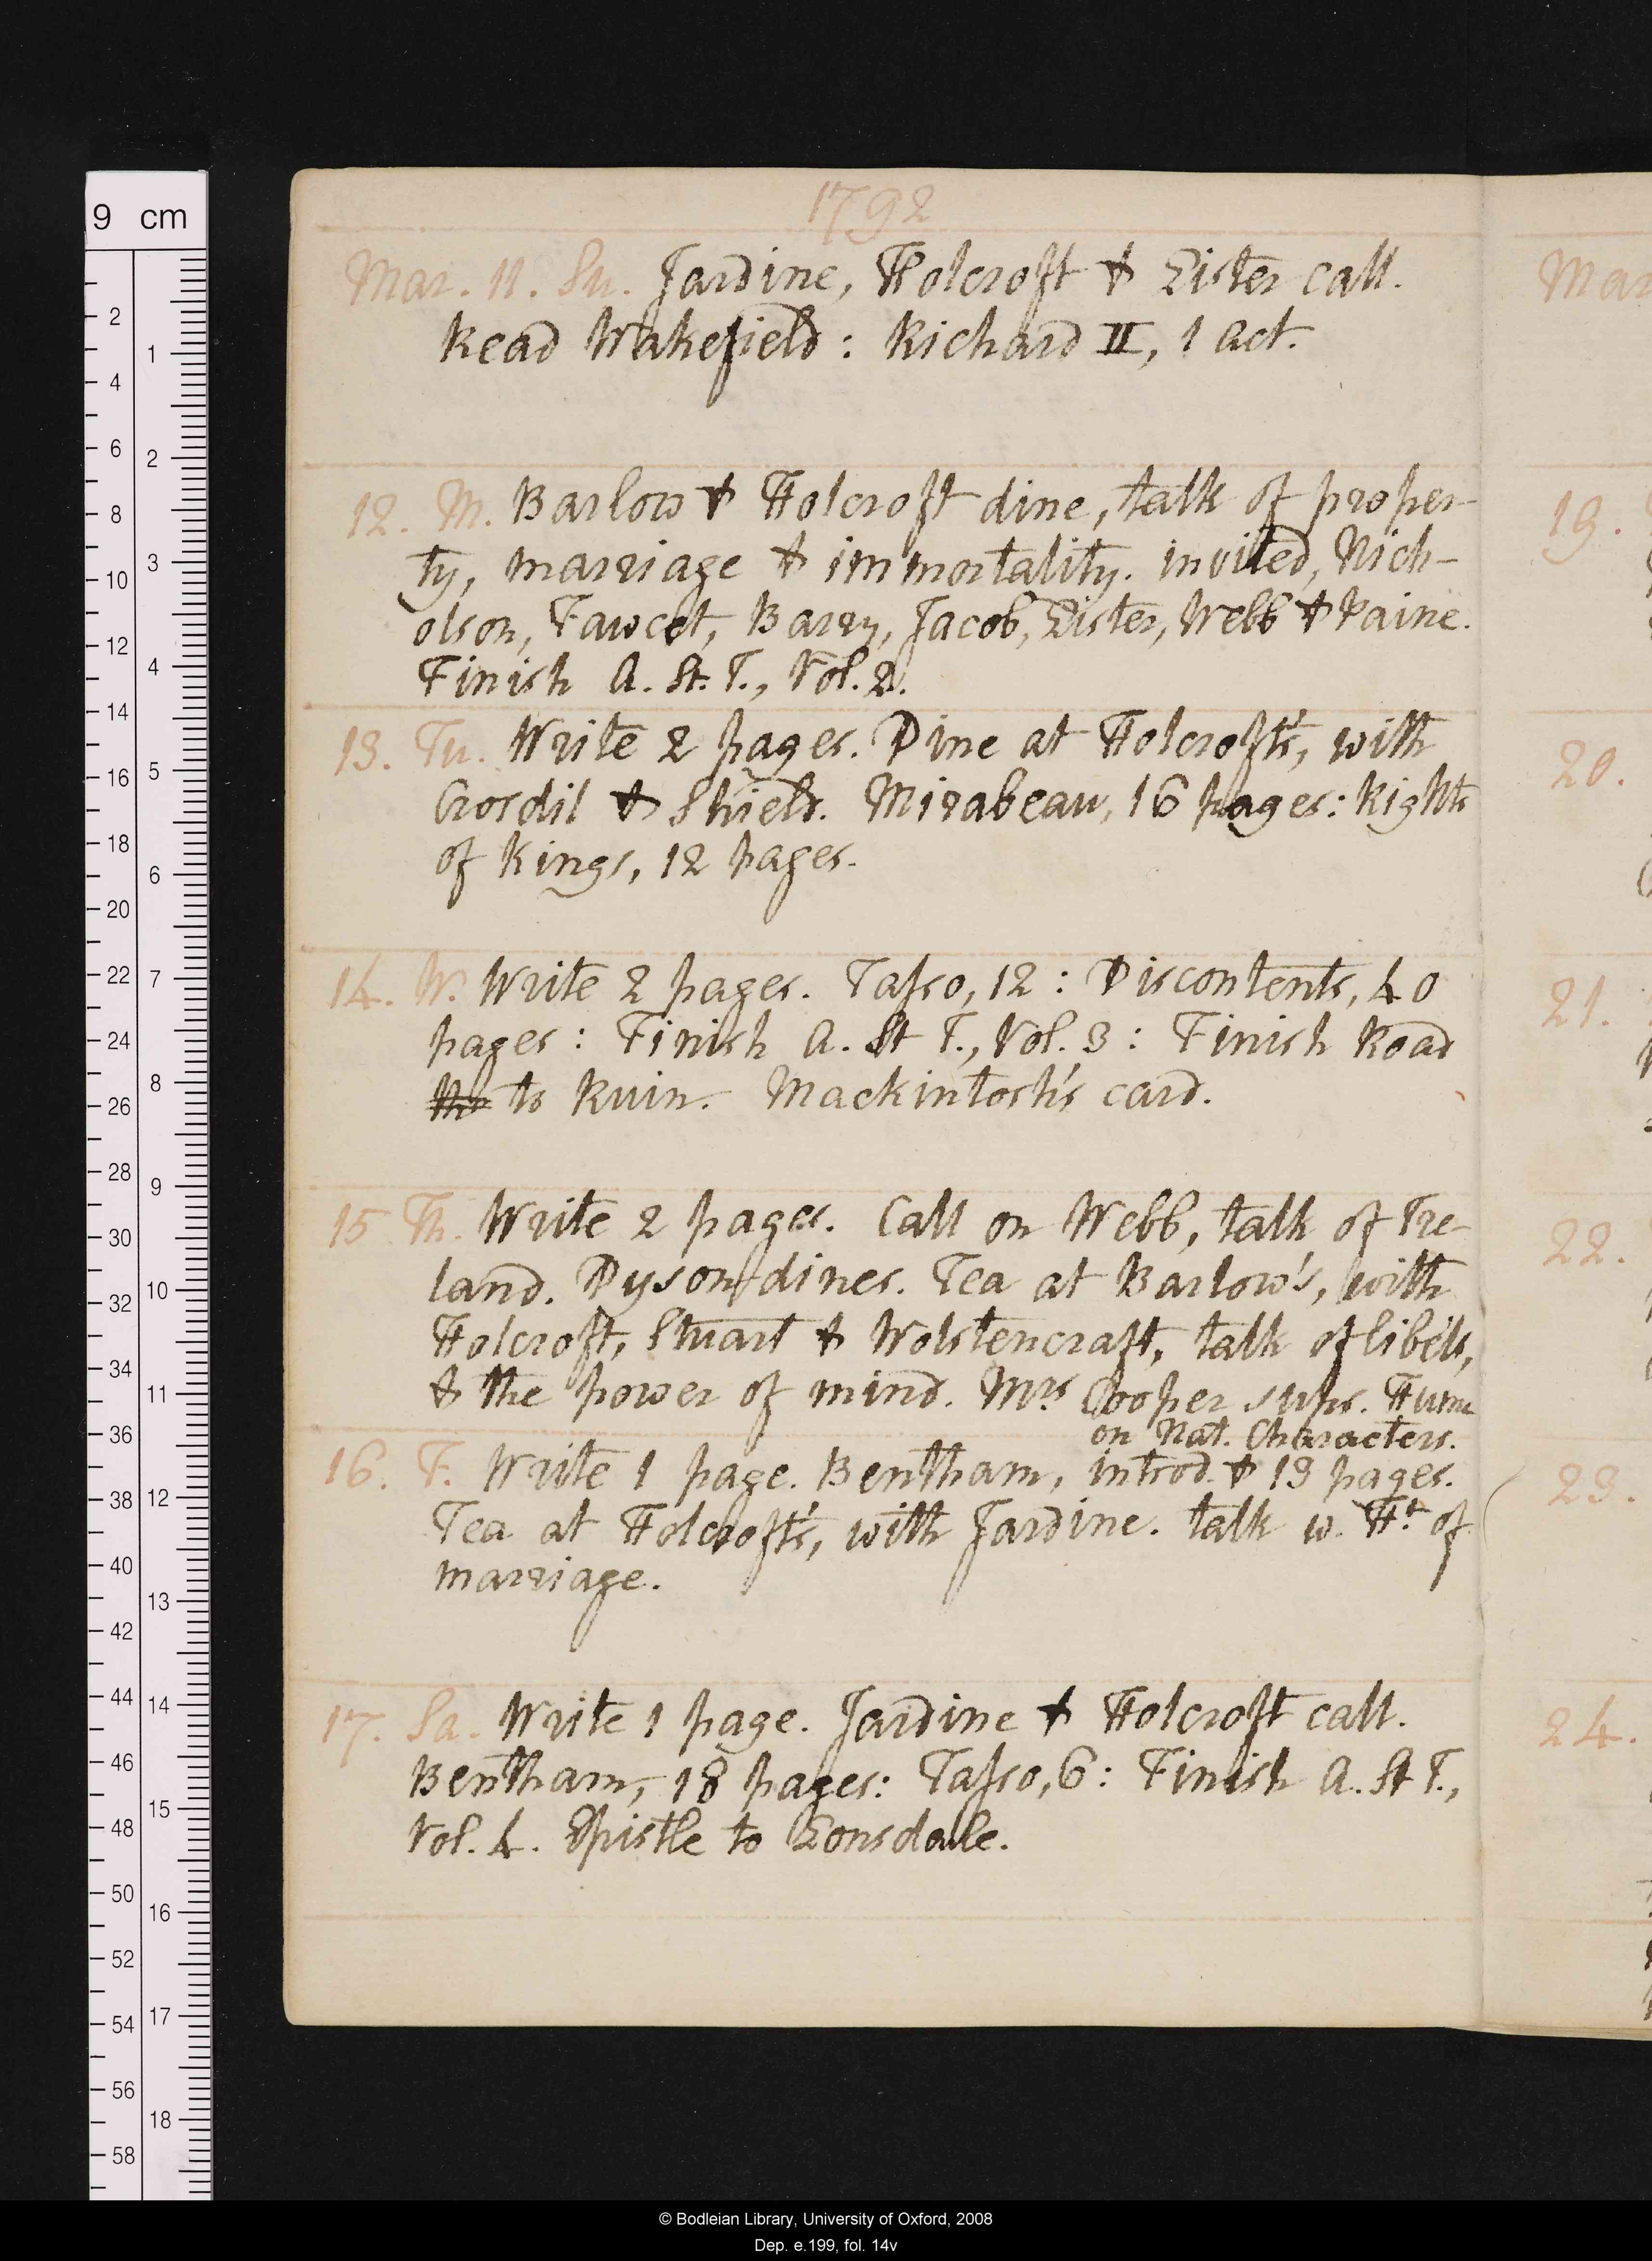 1792
Mar. 11. Su. Jardine, Holcroft & Lister call.
Read Wakefield: Richard II, 1 act.
12. M. Barlow & Holcroft dine, talk of proper-
ty, marriage & immortality. invited, Nich-
olson, Fawcet, Barry, Jacob, Lister, Webb & Paine.
Finish A. St. T., Vol. 2.
13. Tu. Write 2 pages. Dine at Holcroft's, with
Crosdil & Shield. Mirabeau, 16 pages: Rights
of Kings, 12 pages.
14. W. Write 2 pages. Tasso, 12: Discontents, 40
pages: Finish A. St T., Vol. 3: Finish Road
to Ruin. Mackintosh's card.
15 Th. Write 2 pages. Call on Webb, talk of Ire-
land. Dyson dines. Tea at Barlow's, with
Holcroft, Stuart & Wolstencraft, talk of libels,
& the power of mind. Mrs Cooper sups. Hume
on Nat. Characters.
16. F. Write 1 page. Bentham, introd. & 13 pages.
Tea at Holcroft's, with Jardine. talk w. Ht of
marriage.
17. Sa. Write 1 page. Jardine & Holcroft call.
Bentham, 18 pages: Tasso, 6: Finish A. St T.,
Vol. 4. Epistle to Lonsdale.
Mar
19.
20.
21.
22.
23.
24.
9 cm
2
4
6
8
10
12
14
16
18
20
22
24
26
28
30
32
34
36
38
40
42
44
46
48
50
52
54
56
58
1
2
3
4
5
6
7
8
9
10
11
12
13
14
15
16
17
18
© Bodleian Library, University of Oxford, 2008
Dep. e.199, fol. 14v